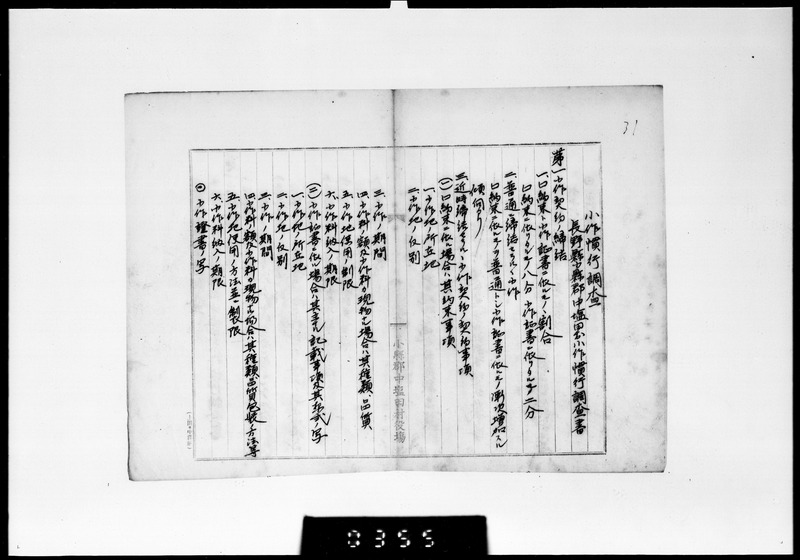 31
小作慣行調査
長野縣小縣郡中塩田村小作慣行調査書
第一 小作契約ノ締結
一、口約束ニ小作証書ニ依ルモノノ割合
口約束ニ依ルモノ八分 小作証書ニ依ルモノ二分
二、普通ニ締結セラルル小作
口約束ニ依ルモノヲ普通トシ小作証書ニ依ルモノ漸次増加スル
傾向アリ
三、近時締結セラルル小作契約ノ契約事項
(一)口約束ニ依ル場合ハ其約束事項
一、小作地ノ所在地
二、小作地ノ反別
三、小作ノ期間
四、小作料ノ額及小作料ガ現物ナル場合ハ其種類、品質
五、小作地使用ノ制限
六、小作料納入ノ期限
(二)小作証書ニ依ル場合ハ其書ノ記載事項及其形式ノ写
一、小作地ノ所在地
二、小作地ノ反別
三、小作ノ期間
四、小作料ノ額及小作料ガ現物ナル場合ハ其種類品質包装方法等
五、小作地使用ノ方法並ニ制限
六、小作料納入ノ期限
小作證書ノ写
小縣郡中塩田村役場
0355